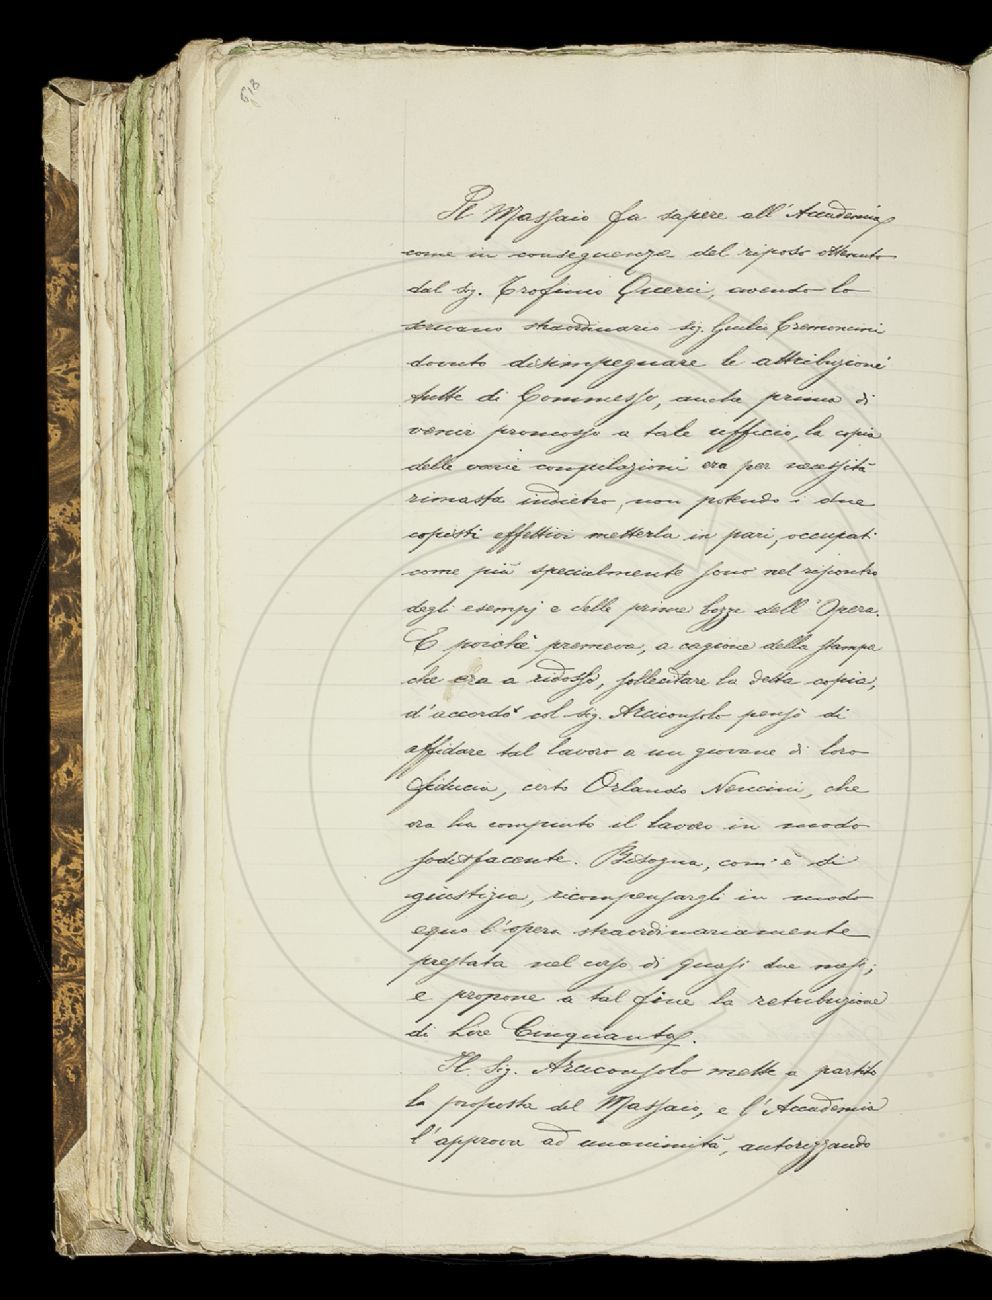 618
Il Massaio fa sapere all'Accademia
come in conseguenza del riposo ottenuto
dal sig. Trofimio Querci, avendo lo
scrivano straordinario sig. Giulio Cremoncini
dovuto disimpegnare le attribuzioni
tutte di Commesso, anche prima di
venir promosso a tale ufficio, la copia
delle varie compilazioni era per necessità
rimasta indietro, non potendo i due
copisti effettivi metterla in pari, occupati
come più specialmente sono nel riscontro
degli esempj e delle prime bozze dell'Opera.
E poichè premeva, a cagione della stampa
che era a ridosso, sollecitare la detta copia,
d'accordo col sig. Arciconsolo pensò di
affidare tal lavoro a un giovane di loro
fiducia, certo Orlando Nencini, che
ora ha compiuto il lavoro in modo
sodisfacente. Bisogna, com'è di
giustizia, ricompensargli in modo
equo l'opera straordinariamente
prestata nel corso di quasi due mesi;
e propone a tal fine la retribuzione
di Lire Cinquanta.
Il Sig. Arciconsolo mette a partito
la proposta del Massaio, e l'Accademia
l'approva ad unanimità, autorizzando